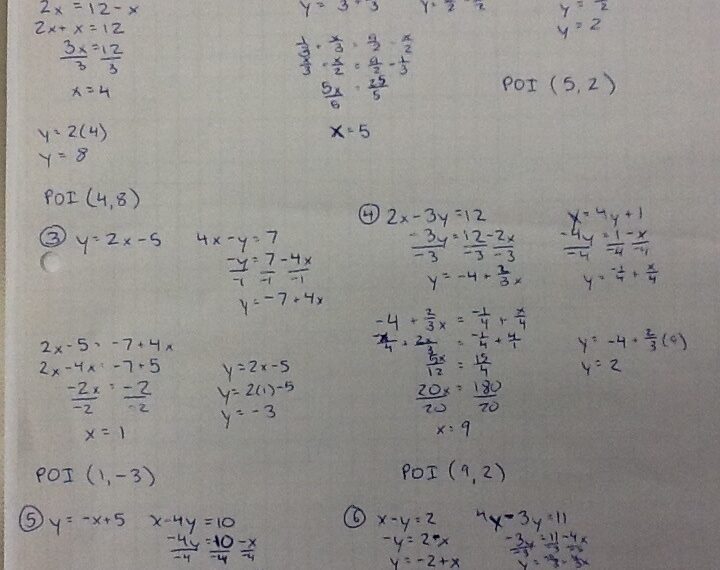 2x = 12 - x
2x + x = 12
3x = 12
3 3
x = 4
y = 2(4)
y = 8
POI (4,8)
1/3 + x/3 = 9/2 - x/2
x/3 + x/2 = 9/2 - 1/3
5x/5 = 25/5
x = 5
y = 2
POI (5,2)
③ y = 2x - 5
4x - y = 7
-y = 7 - 4x
-1 -1 -1
y = -7 + 4x
2x - 5 = -7 + 4x
2x - 4x = -7 + 5
-2x = -2
-2 -2
x = 1
y = 2x - 5
y = 2(1) - 5
y = -3
POI (1,-3)
④ 2x - 3y = 12
-3y = 12 - 2x
-3 -3 -3
y = -4 + 2/3 x
x = 4y + 1
-4y = 1 - x
-4 -4 -4
y = -1/4 + x/4
-4 + 2/3 x = -1/4 + x/4
-x/4 + 2x/3 = -1/4 + 4/1
5x/12 = 15/4
20x = 180
20 20
x = 9
y = -4 + 2/3 (9)
y = 2
POI (9,2)
⑤ y = -x + 5
x - 4y = 10
-4y = 10 - x
-4 -4 -4
⑥ x - y = 2
-y = 2 - x
y = -2 + x
4x - 3y = 11
-3y = 11 - 4x